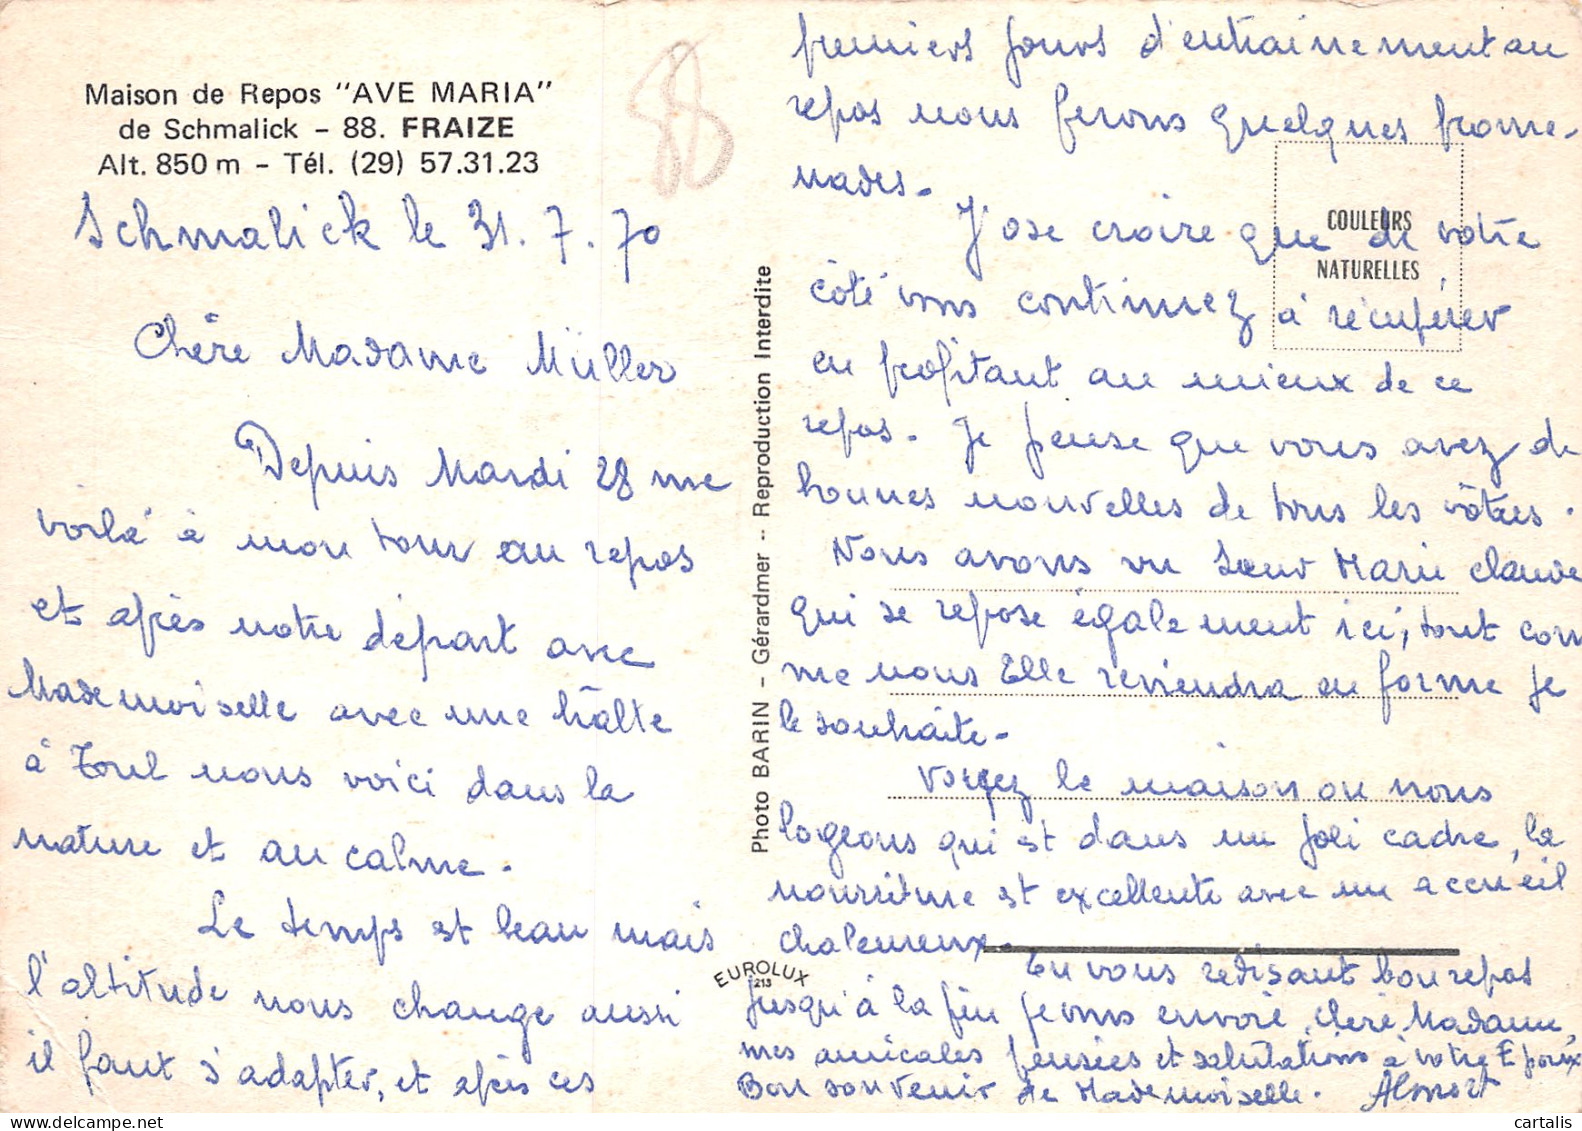 Maison de Repos "AVE MARIA"
de Schmalick - 88. FRAIZE
Alt. 850 m - Tél. (29) 57.31.23
88
Schmalick le 31.7.70
Chère Madame Müller
Depuis Mardi 28 me
voilà à mon tour au repos
et après notre départ avec
Mademoiselle avec une halte
à Toul nous voici dans la
nature et au calme.
Le temps est beau mais
l'altitude nous change aussi
il faut s'adapter, et après ces
Photo BARIN - Gérardmer -- Reproduction Interdite
EUROLUX
213
COULEURS
NATURELLES
premiers jours d'entrainement au
repos nous ferons quelques prome-
nades.
J'ose croire que de votre
côté vous continuez à récupérer
en profitant au mieux de ce
repos. Je pense que vous avez de
bonnes nouvelles de tous les vôtres.
Nous avons vu Soeur Marie Claude
qui se repose également ici, tout com
me nous Elle reviendra en forme je
le souhaite.
Voyez la maison ou nous
logeons qui est dans un joli cadre, la
nourriture est excellente avec un accueil
chaleureux.
En vous redisant bon repos
jusqu'à la fin je vous envoie, chère Madame,
mes amicales pensées et salutations à votre Epoux
Bon souvenir de Mademoiselle.